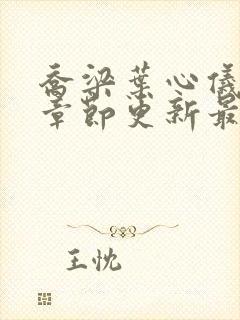 乔梁叶心仪
章节更新最
王忱